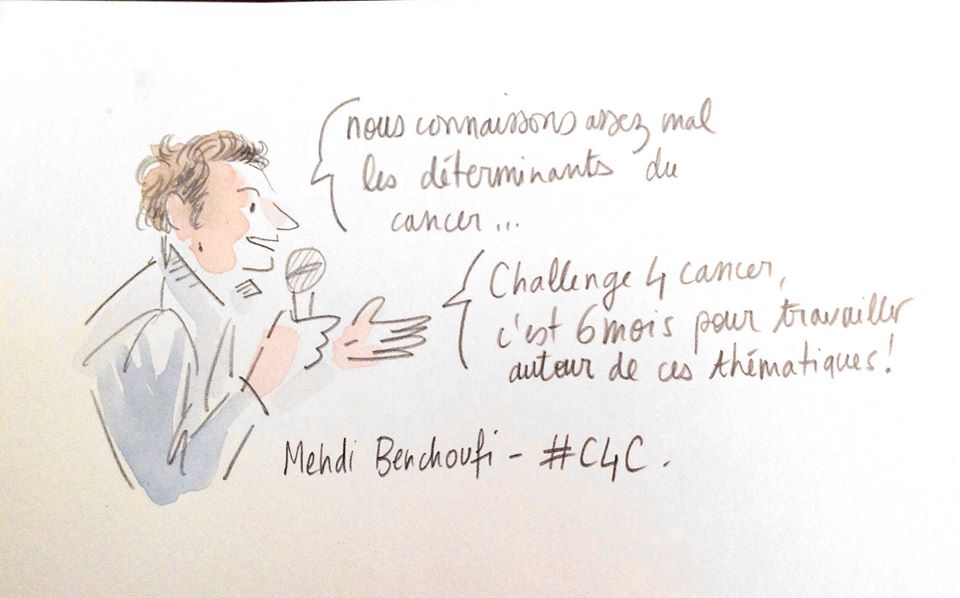 nous connaissons assez mal
les déterminants du
cancer...
Challenge 4 cancer,
c'est 6 mois pour travailler
autour de ces thématiques!
Mehdi Benchoufi - #C4C.